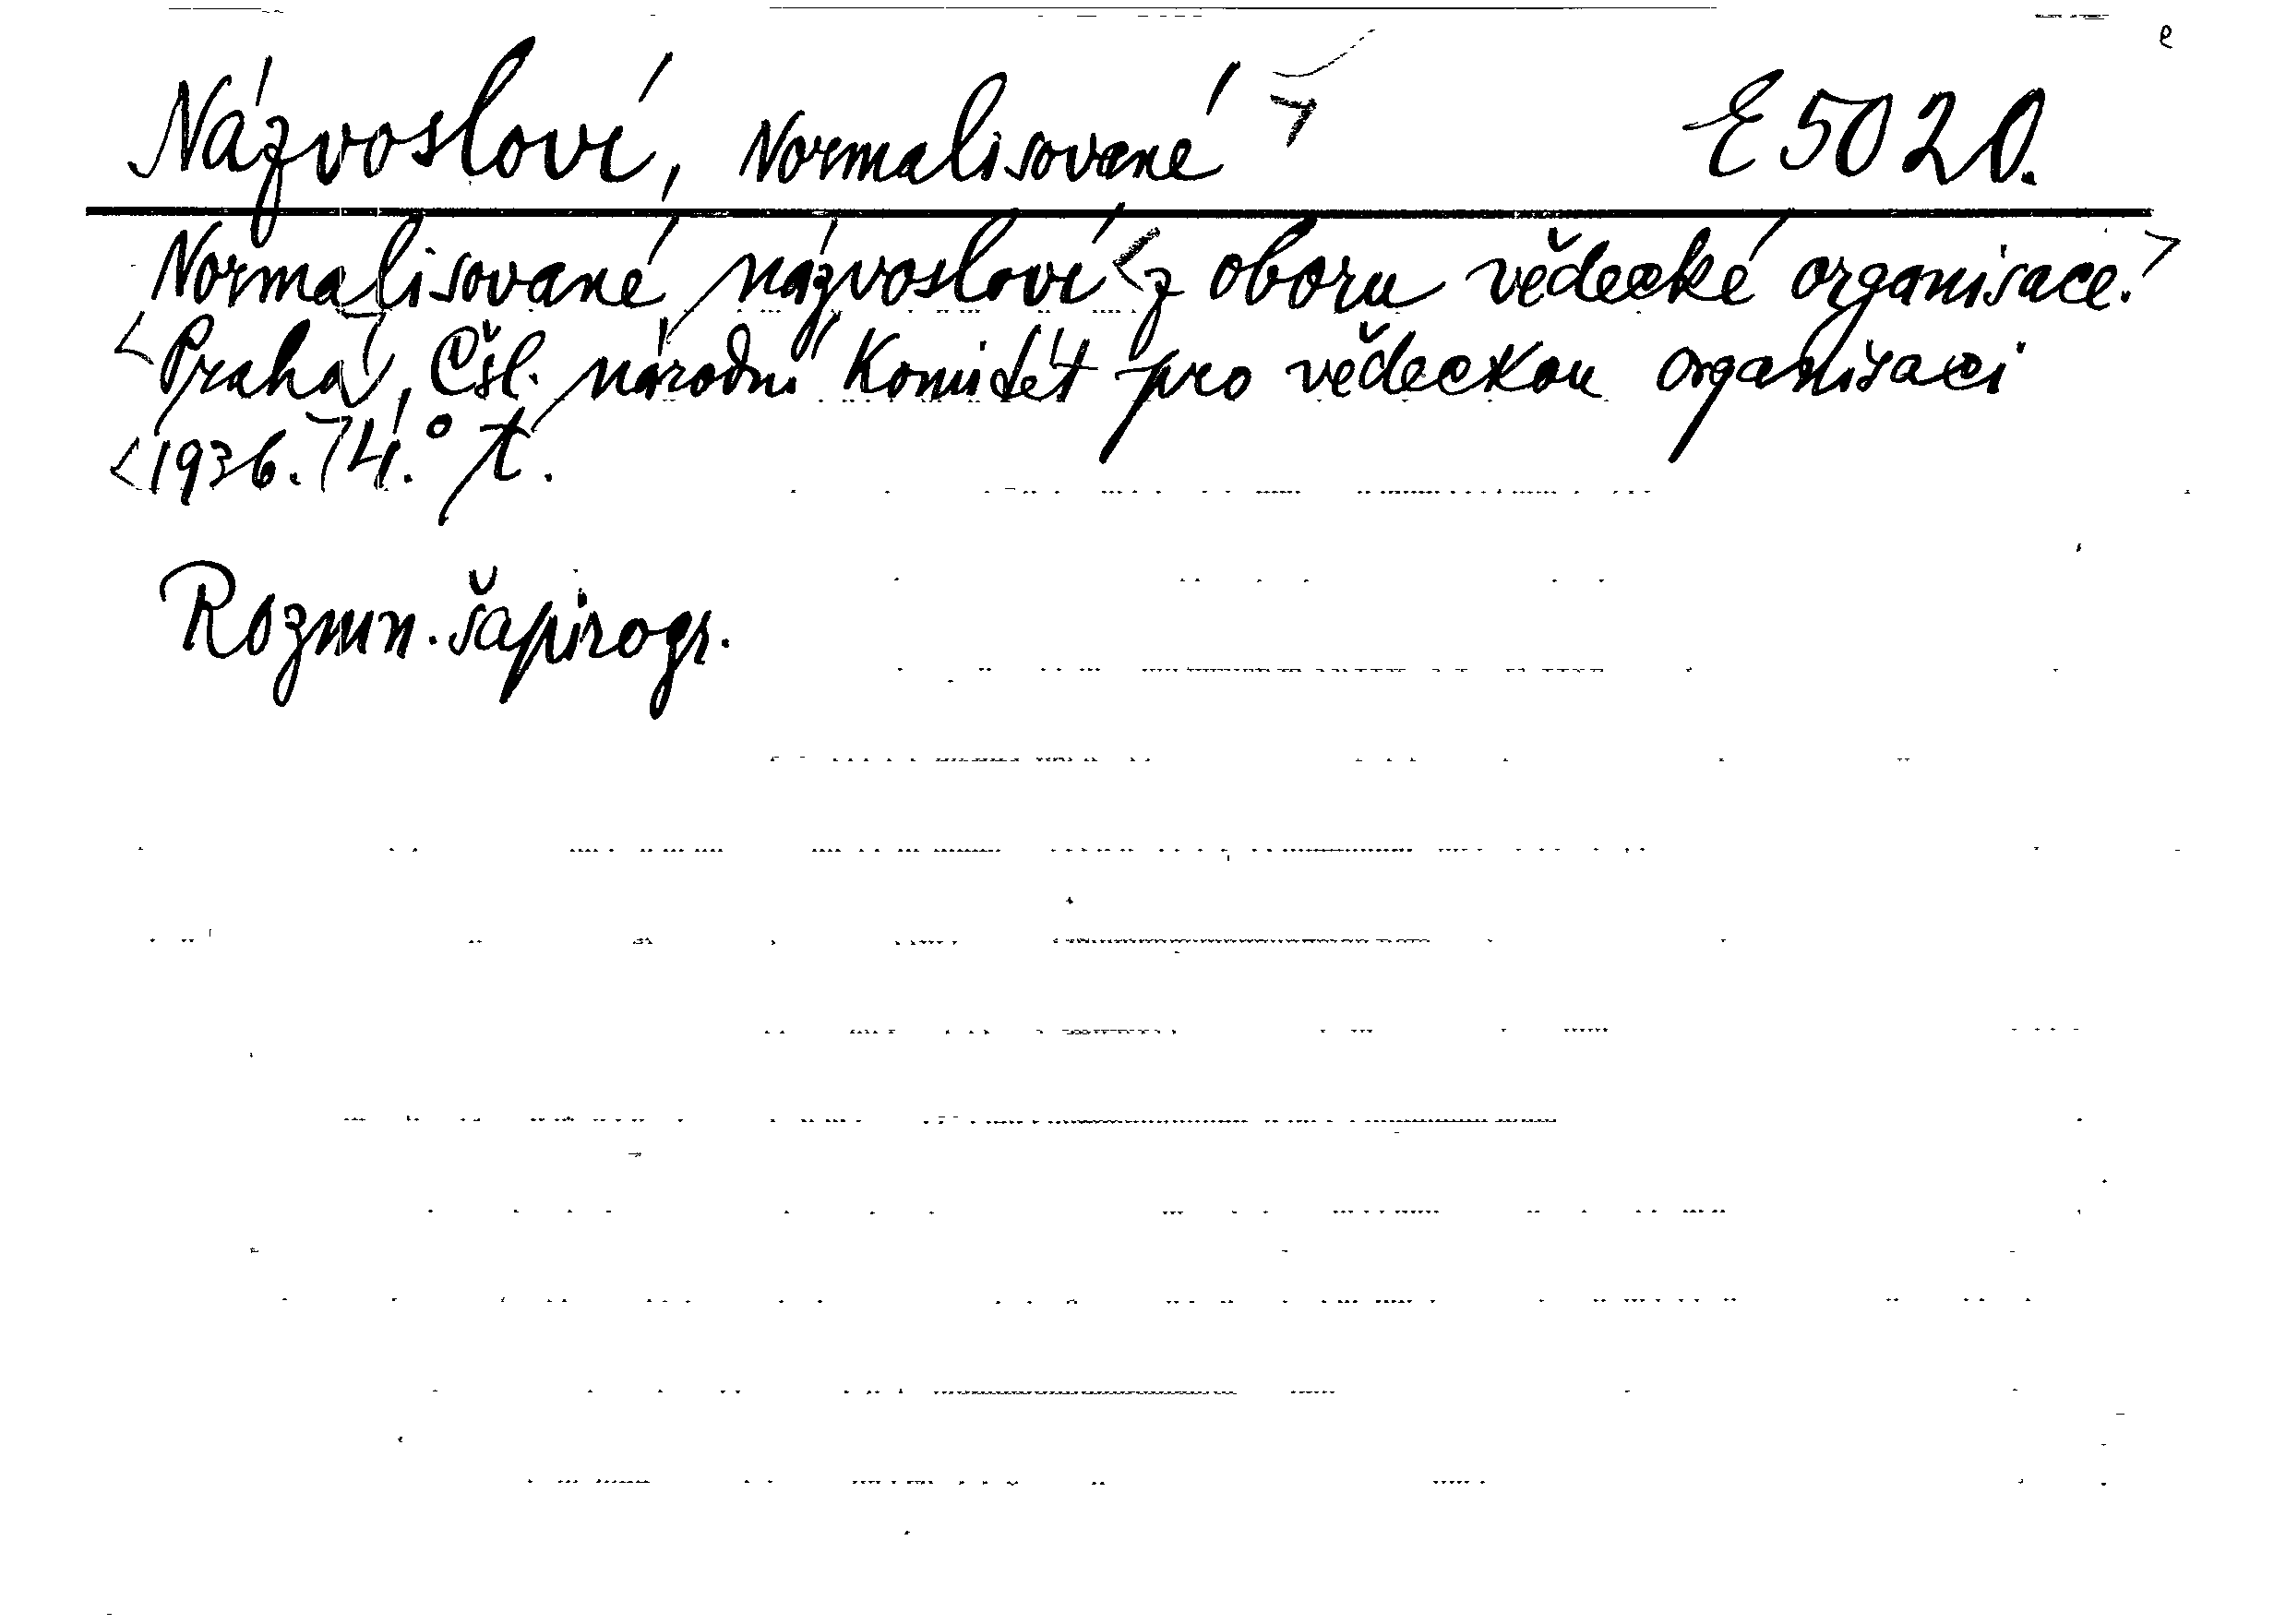 Názvosloví, Normalisované E 5020.
Normalisované názvosloví z oboru vědecké organisace.
Praha, Čsl. národní Komitét pro vědeckou organisaci
1936. 4.° t.
Rozmn. šapirogr.